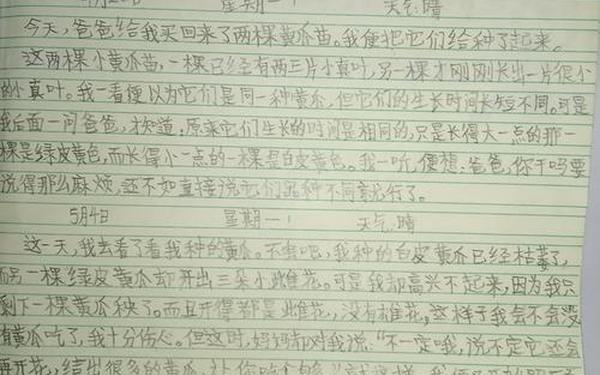 星期一 天气:晴
今天,爸爸给我买回来了两棵黄瓜苗。我便把它们给种了起来。
这两棵小黄瓜苗,一棵已经有两三片小真叶,另一棵才刚刚长出一片很小
的小真叶。我一看便以为它们是同一种黄瓜,但它们的生长时间长短不同。可是
我后面一问爸爸,才知道,原来它们生长的时间是相同的,只是长得大一点的那一
棵是绿皮黄色,而长得小一点的一棵是白皮黄色。我一听,便想:爸爸,你干吗要
说得那么麻烦,还不如直接说它们品种不同就行了。
5月4日 星期一 天气:晴
这一天,我去看了看我种的黄瓜。不会吧,我种的白皮黄瓜已经枯萎了,
而另一棵绿皮黄瓜却开出三朵小雌花。可是我却高兴不起来,因为我只
剩下一棵黄瓜秧了。而且开得都是雌花,没有雄花,这样子我会不会没
有黄瓜吃了,我十分伤心。但这时,妈妈却对我说:“不一定哦,说不定它还会
再开花,结出很多的黄瓜,让你吃个够。”